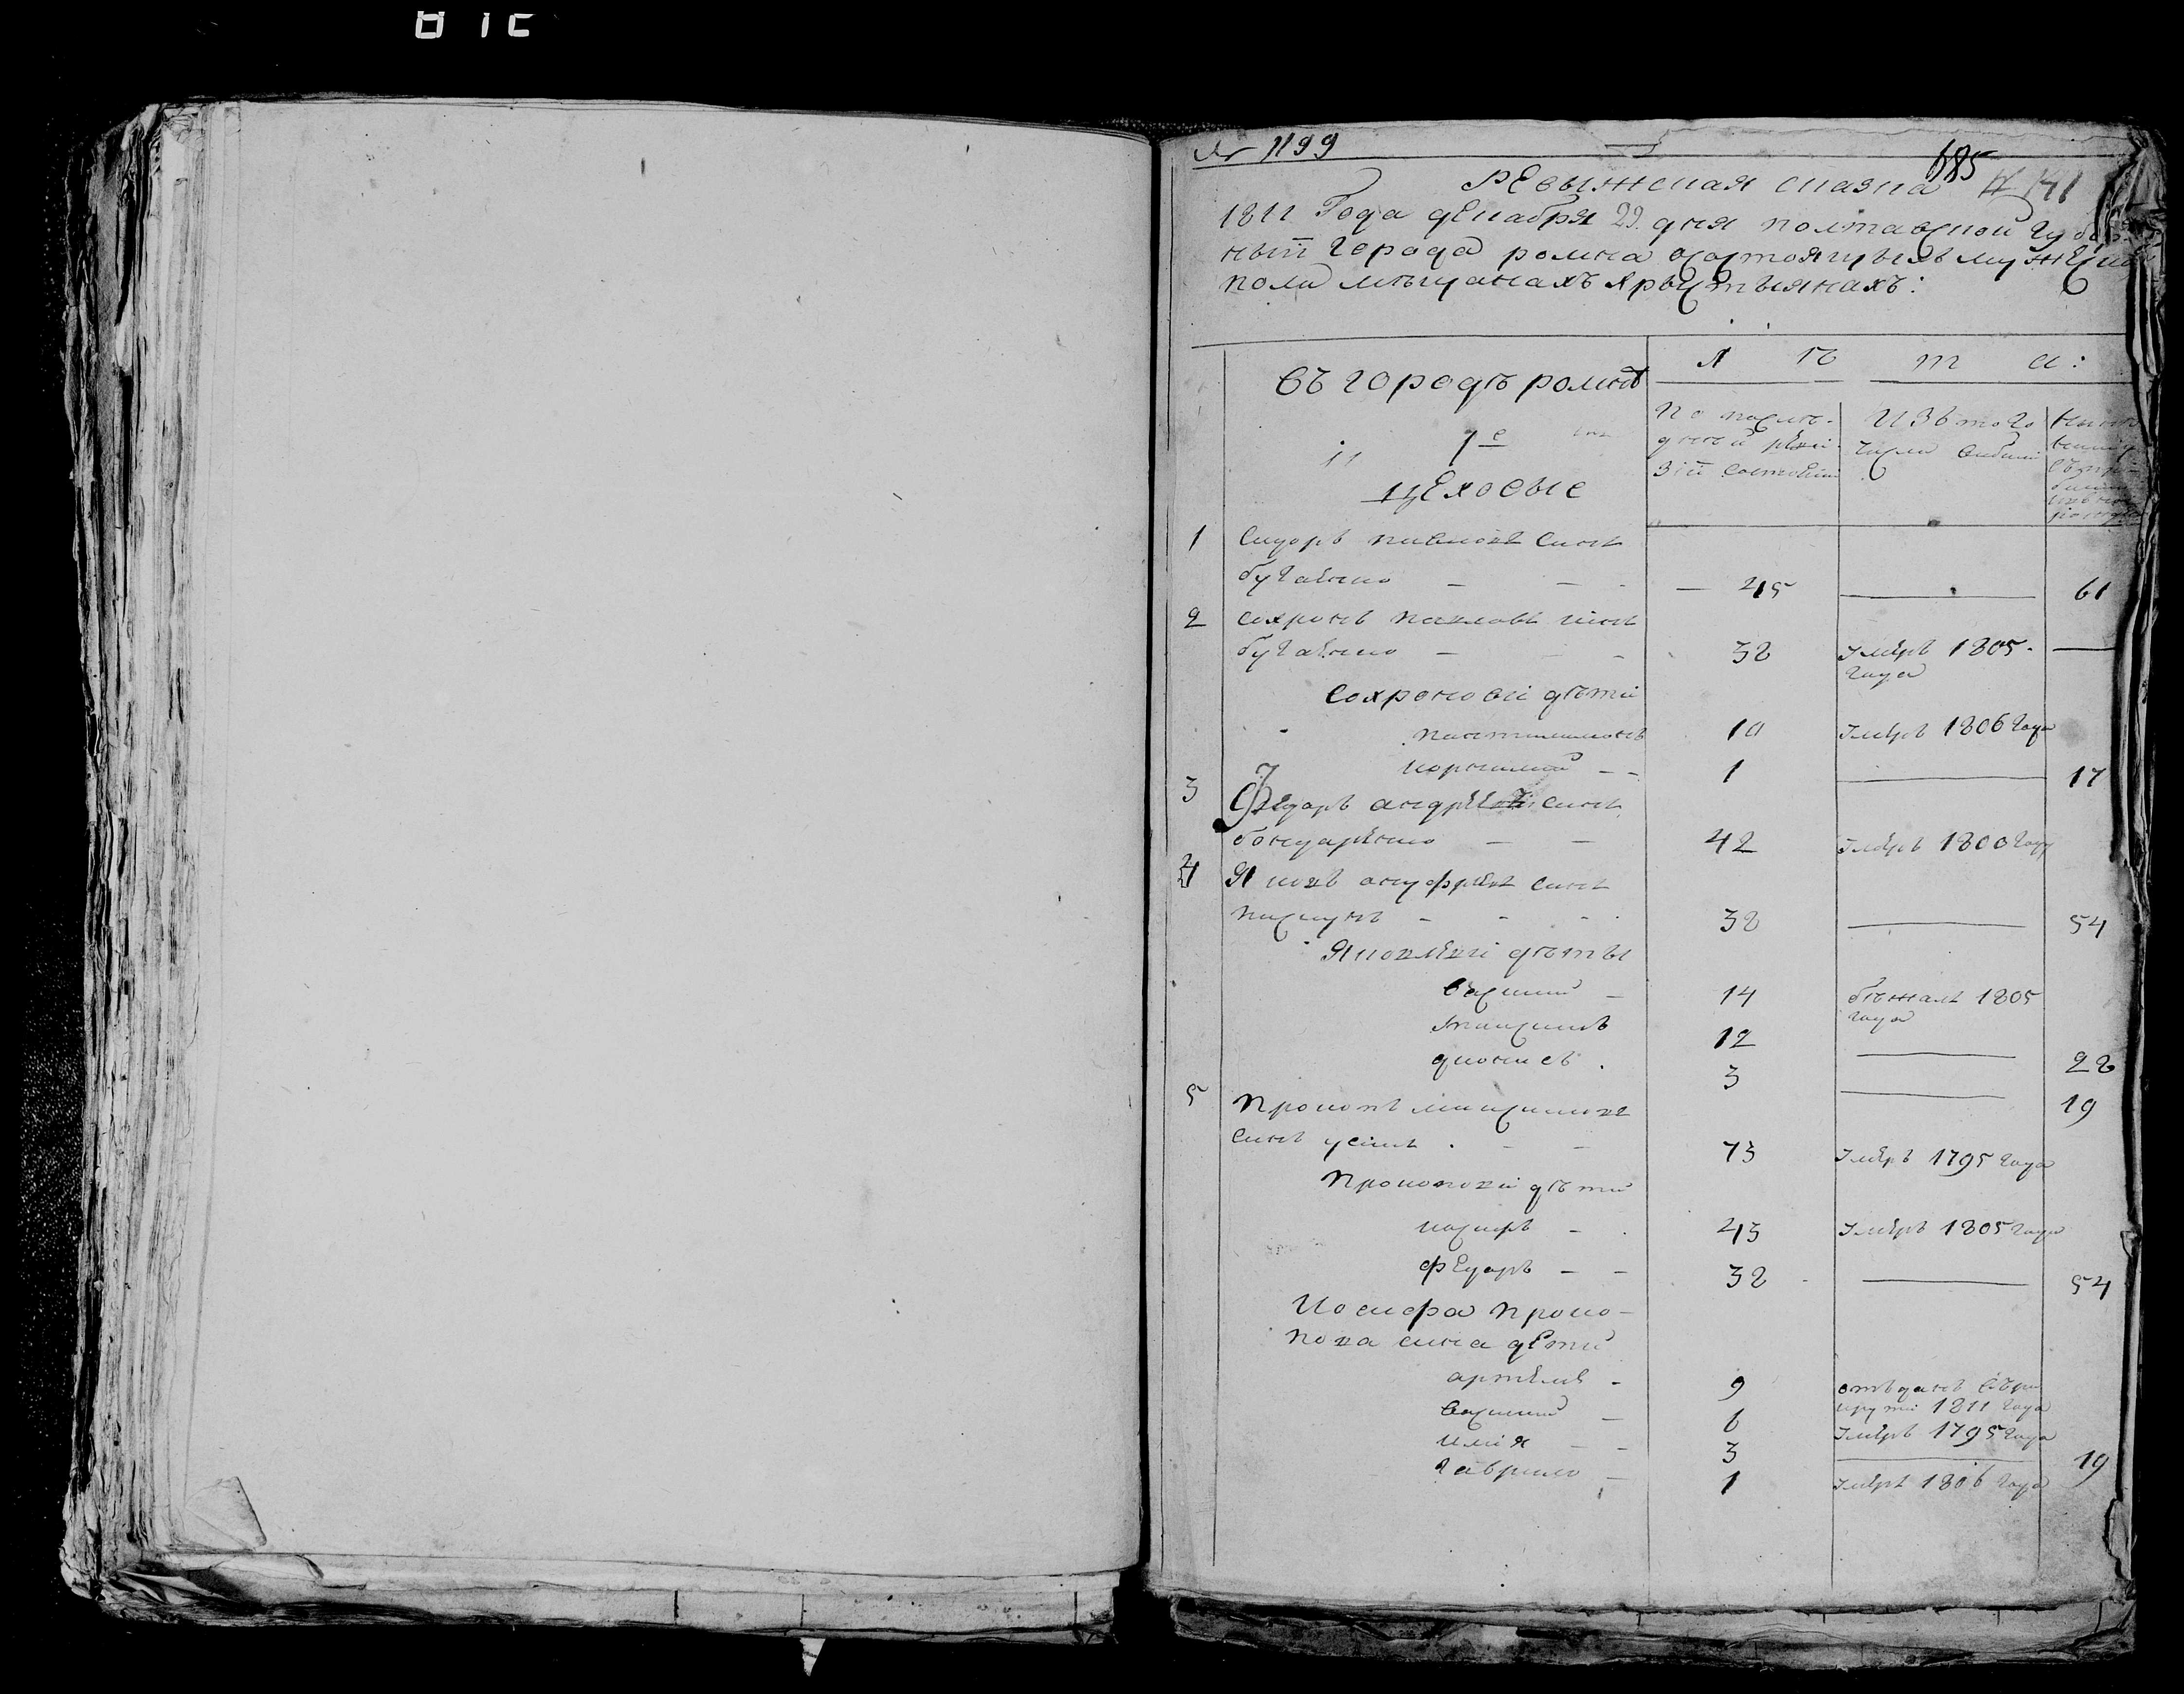 № 1199
685
141
Ревыжская сказка
1811 Года декабря 22 дня полтавской губер-
ныи города ромна осостоящыхъ мужеска
пола мѣщанахъ хрыстыянахъ:
Въ городѣ ромнѣ
Л ѣ т а:
1е
цеховые
По послѣ-
дней реви-
зіи состояли
Изъ того
числа выбыли
1 Сидоръ павловъ синъ
бугаенко — 45 — 61
2 Сохронъ павловъ синъ
бугаенко — 38 Умеръ 1805 —
года
Сохронови дѣти
пантилимонъ 10 Умеръ 1806 года
корнилий 1 — 17
3 Федоръ андреевъ синъ
бондаренко — 42 Умеръ 1800 году
4 Яковъ онуфриевъ синъ
пасиукъ 38 — 54
Яковлеви дѣты
василий 14 бѣжалъ 1805
года
максимъ 12 — 28
дионисъ 3 — 19
5 Прокопъ максимовъ
синъ усикъ 73 Умеръ 1795 года
Прокопови дѣти
касиръ 43 Умеръ 1805 года
федоръ — 38 — 54
Иосифа проко-
пова сина дети
артемъ 9 отъданъ въре
круты 1811 года
василий 6 Умеръ 1795 года
илия 3 — 19
гаврило 1 Умеръ 1806 года